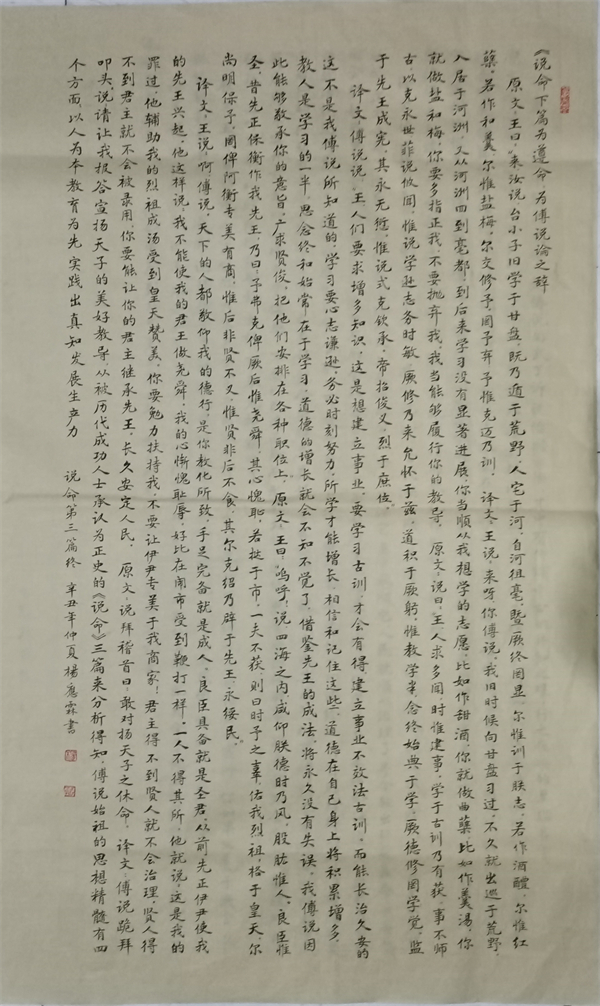 《说命下篇为遵命为傅说论之辞
原文王曰，来汝说台小子旧学于甘盘，既乃遁于荒野，入宅于河，自河徂亳，暨厥终罔显，尔惟训于朕志，若作酒醴，尔惟红
蘖，若作和羹，尔惟盐梅，尔交修予，罔予弃予惟克迈乃训，译文王说，来呀你傅说，我旧时候向甘盘习过，不久就出巡于荒野，
入居于河洲，又从河洲四到亳都，到后来学习没有显著进展，你当顺从我想学的志愿，比如作甜酒，你就做曲蘖比如作羹汤，你
就做盐和梅，你要多指正我，不要抛弃我，我当能够履行你的教导，原文，说曰，王人求多闻时惟建事，学于古训乃有获，事不师
古以克永世，菲说攸闻，惟说学逊志务时敏，厥修乃来，允怀于兹，道积于厥躬，惟教学半，念终始典于学，厥德修罔学觉，监
于先王成宪，其永无愆，惟说式克钦承，帝招俊乂，烈于庶位。
译文，傅说说，王人们要求增多知识，这是想建立事业，要学习古训，才会有得，建立事业不效法古训，而能长治久安的
这不是我傅说所知道的，学习要心志谦逊，务必时刻努力，所学才能增长，相信和记住这些，道德在自己身上将积累增多，
教人是学习的一半，思念终和始常在于学习，道德的增长就会不知不觉了，借鉴先王的成法，将永久没有失误，我傅说因
此能够敬承你的意旨，广求贤俊，把他们安排在各种职位上，原文，王曰，呜呼，说四海之内咸仰朕德时乃风，股肱惟人，良臣惟
圣，昔先正保衡作我先王，乃曰：予弗克俾厥后惟尧舜，其心愧耻，若挞于市，一夫不获则曰时予之辜，佑我烈祖，格于皇天尔
尚明保予，罔俾阿衡专美有商，惟后非贤不乂，惟贤非后不食，其尔克绍乃辟于先王，永绥民。
译文，王说，啊傅说，天下的人都敬仰我的德行，是你教化所致，手足完备就是成人，良臣具备就是圣君，从前，先正伊尹使我
的先王兴起，他这样说，我不能使我的君王做尧舜，我的心惭愧耻辱，好比在闹市受到鞭打一样，一人不得其所，他就说，这是我的
罪过，他辅助我的烈祖成汤受到皇天赞美，你要勉力扶持我，不要让伊尹专美于我商家！君主得不到贤人就不会治理，贤人得
不到君主就不会被录用，你要能让你的君主继承先王，长久安定人民，原文，说拜稽首曰，敢对扬天子之休命，译文，傅说跪拜
叩头，说请让我报答宣扬天子的美好教导从被历代成功人士承认为正史的《说命》三篇来分析得知，傅说始祖的思想精髓有四
个方面，以人为本教育为先实践出真知发展生产力 说命第三篇终 辛丑年仲夏杨应霖书